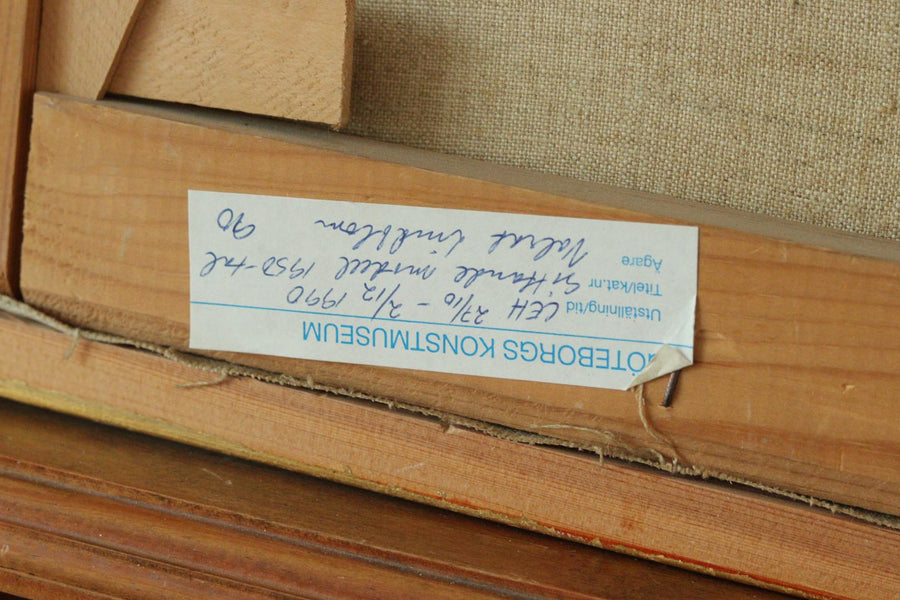 GÖTEBORGS KONSTMUSEUM
Utställning/tid CEH 27/10 - 2/12 1990
Titel/kat.nr Sittande modell 1950-tal
Ägare Lindblom 90